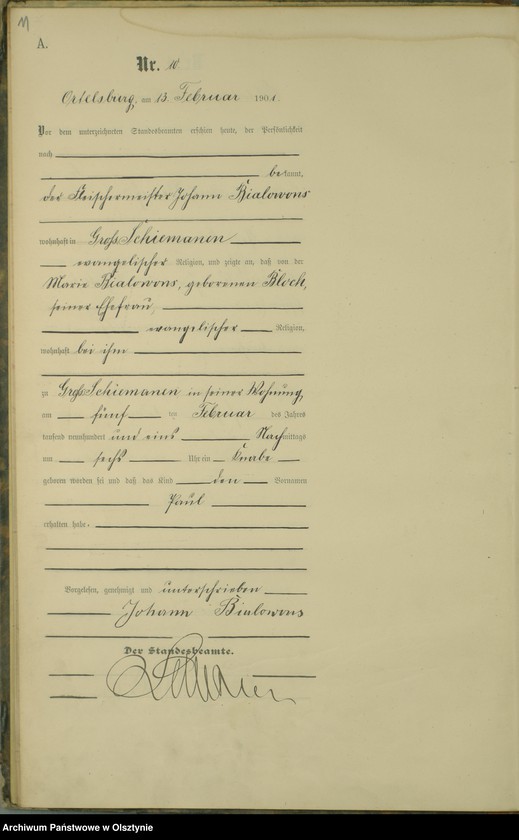 11
A.
Nr. 10
Ortelsburg, am 13. Februar 1901.
Vor dem unterzeichneten Standesbeamten erschien heute, der Persönlichkeit
nach
bekannt,
der Fleischermeister Johann Bialowons
wohnhaft in Groß Schiemanen
evangelischer Religion, und zeigte an, daß von der
Marie Bialowons, geborenen Bloch,
seiner Ehefrau,
evangelischer Religion,
wohnhaft bei ihm
zu Groß Schiemanen in seiner Wohnung
am fünf ten Februar des Jahres
tausend neunhundert und eins Nachmittags
um sechs Uhr ein Knabe
geboren worden sei und daß das Kind den Vornamen
Paul
erhalten habe.
Vorgelesen, genehmigt und unterschrieben
Johann Bialowons
Der Standesbeamte.
Archiwum Państwowe w Olsztynie